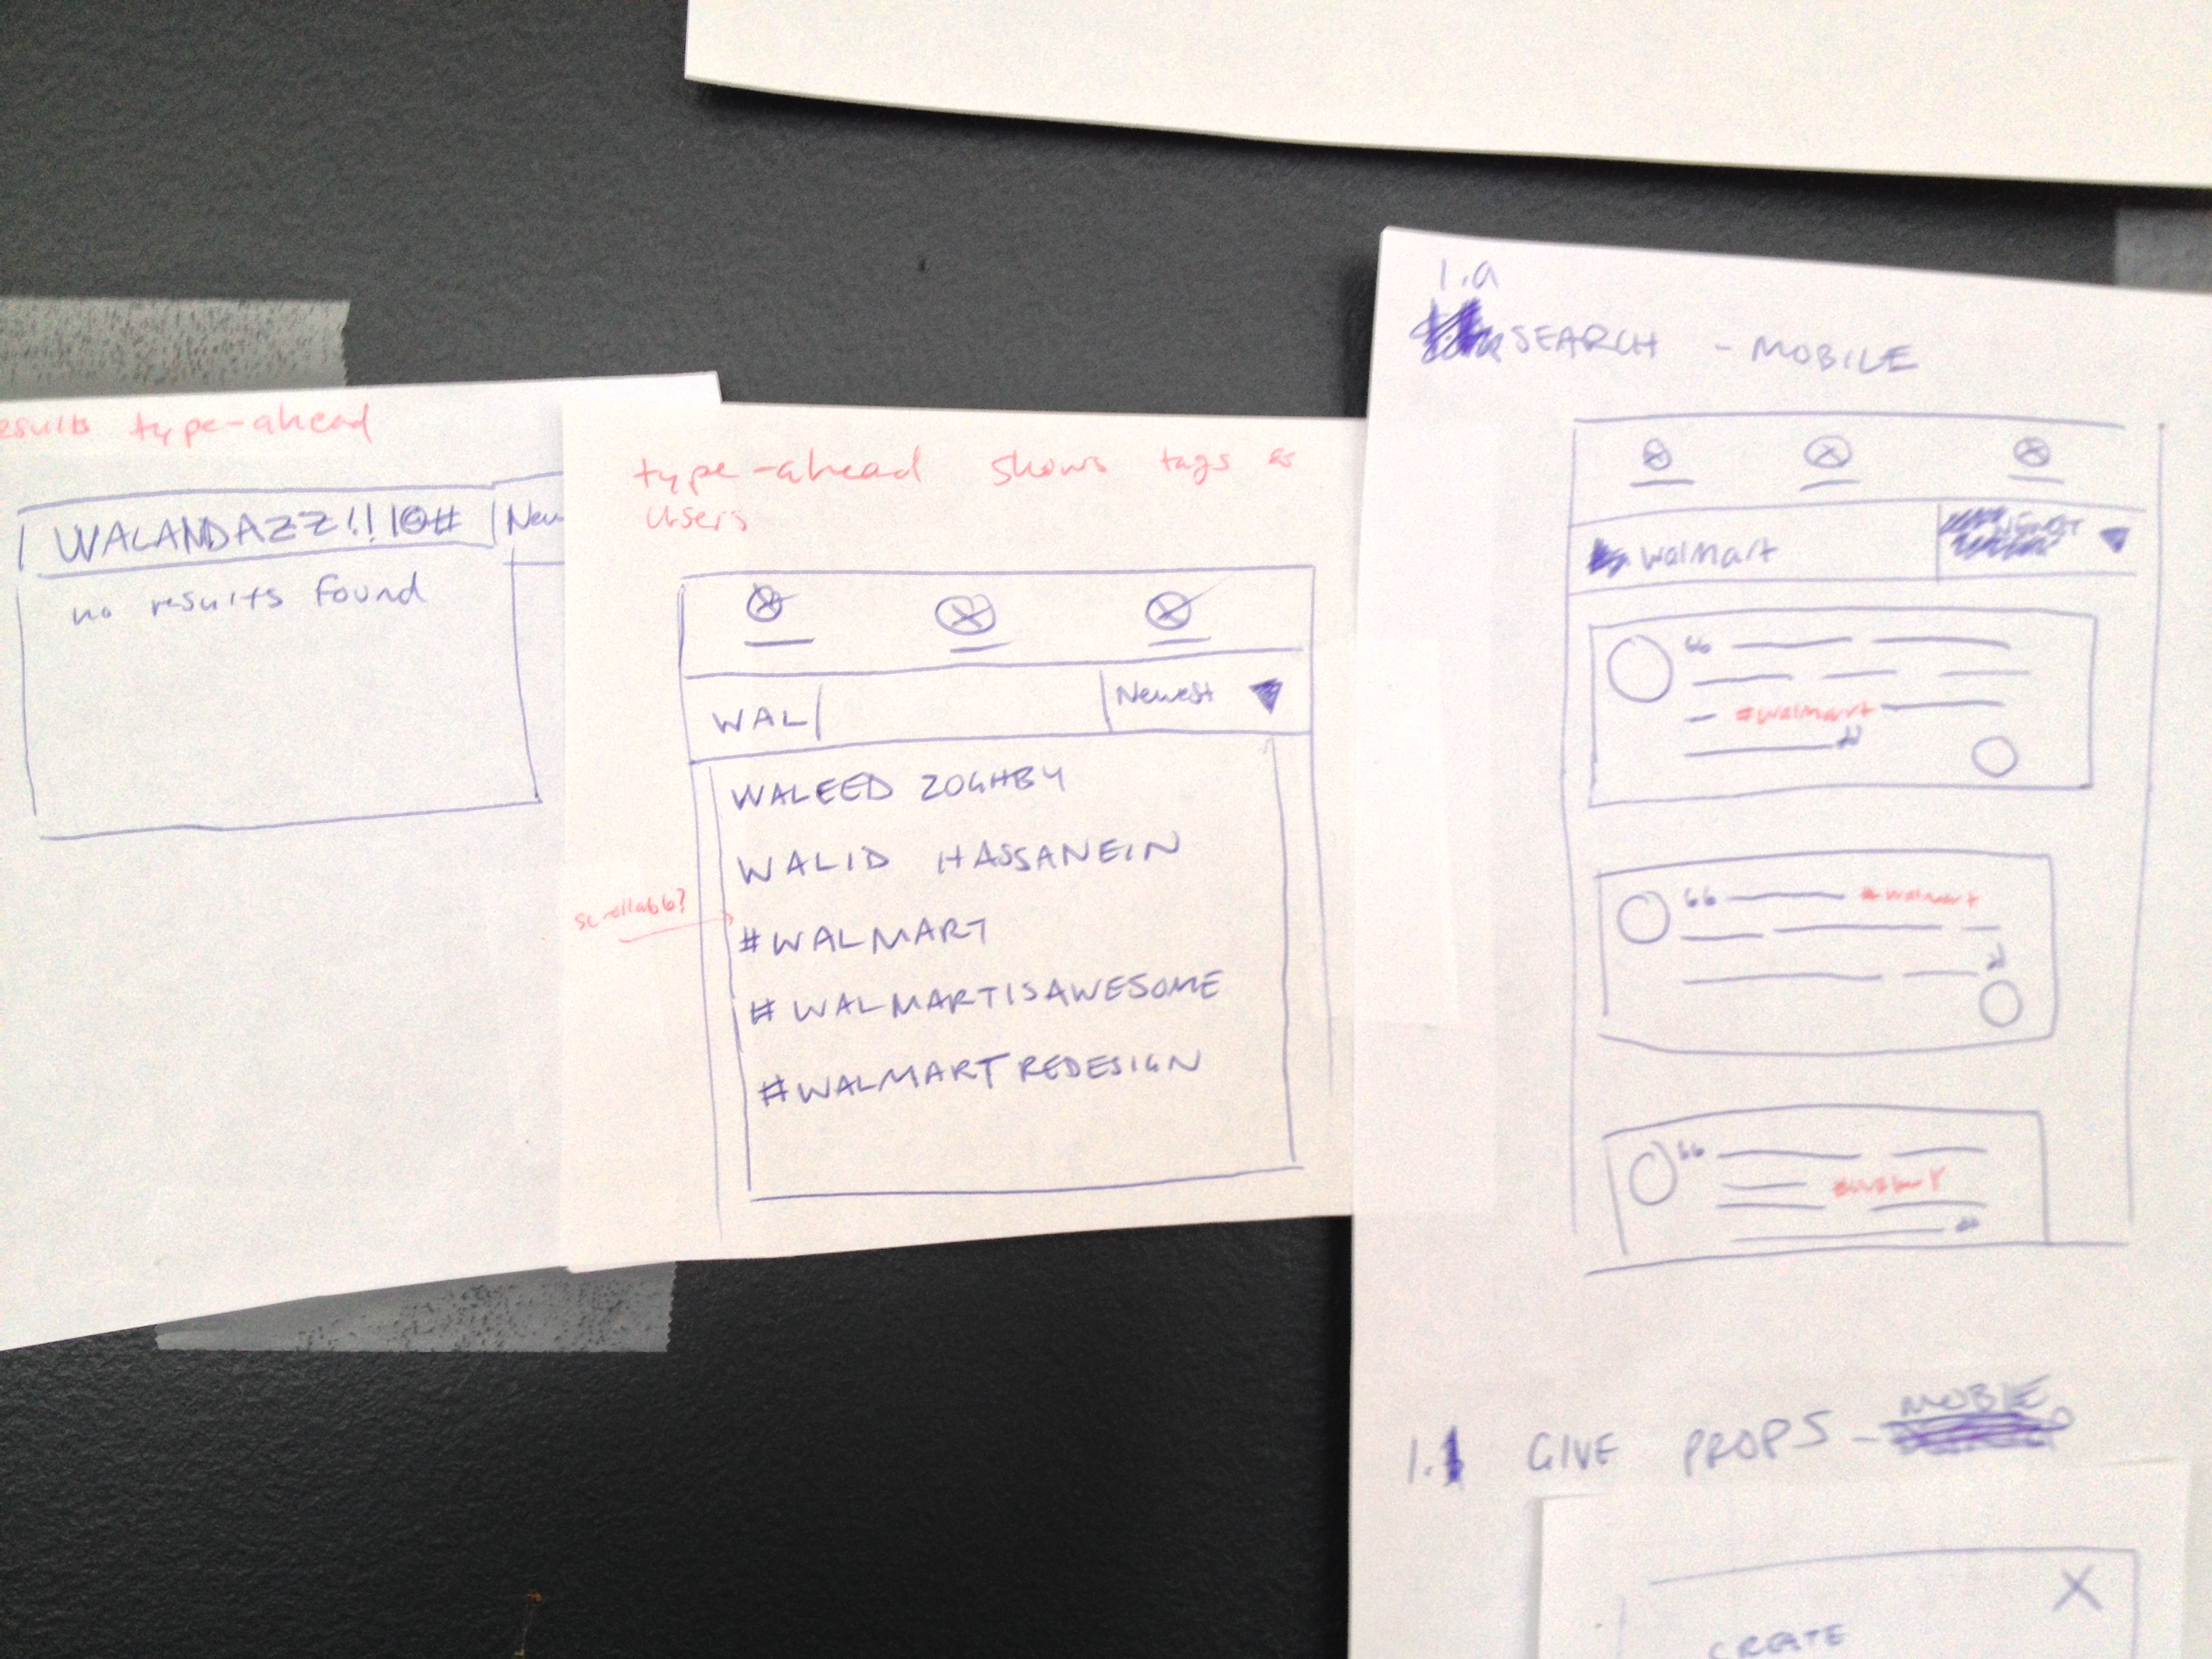 results type-ahead
WALANDAZZ!!1@#
New
no results found
type-ahead shows tags &
users
WAL
Newest
WALEED ZOGHBY
WALID HASSANEIN
scrollable?
#WALMART
#WALMARTISAWESOME
#WALMARTREDESIGN
1.a
SEARCH - MOBILE
walmart
Newest
“
#walmart
”
“
#walmart
”
“
#walmart
”
1.1 GIVE PROPS - MOBILE
X
CREATE